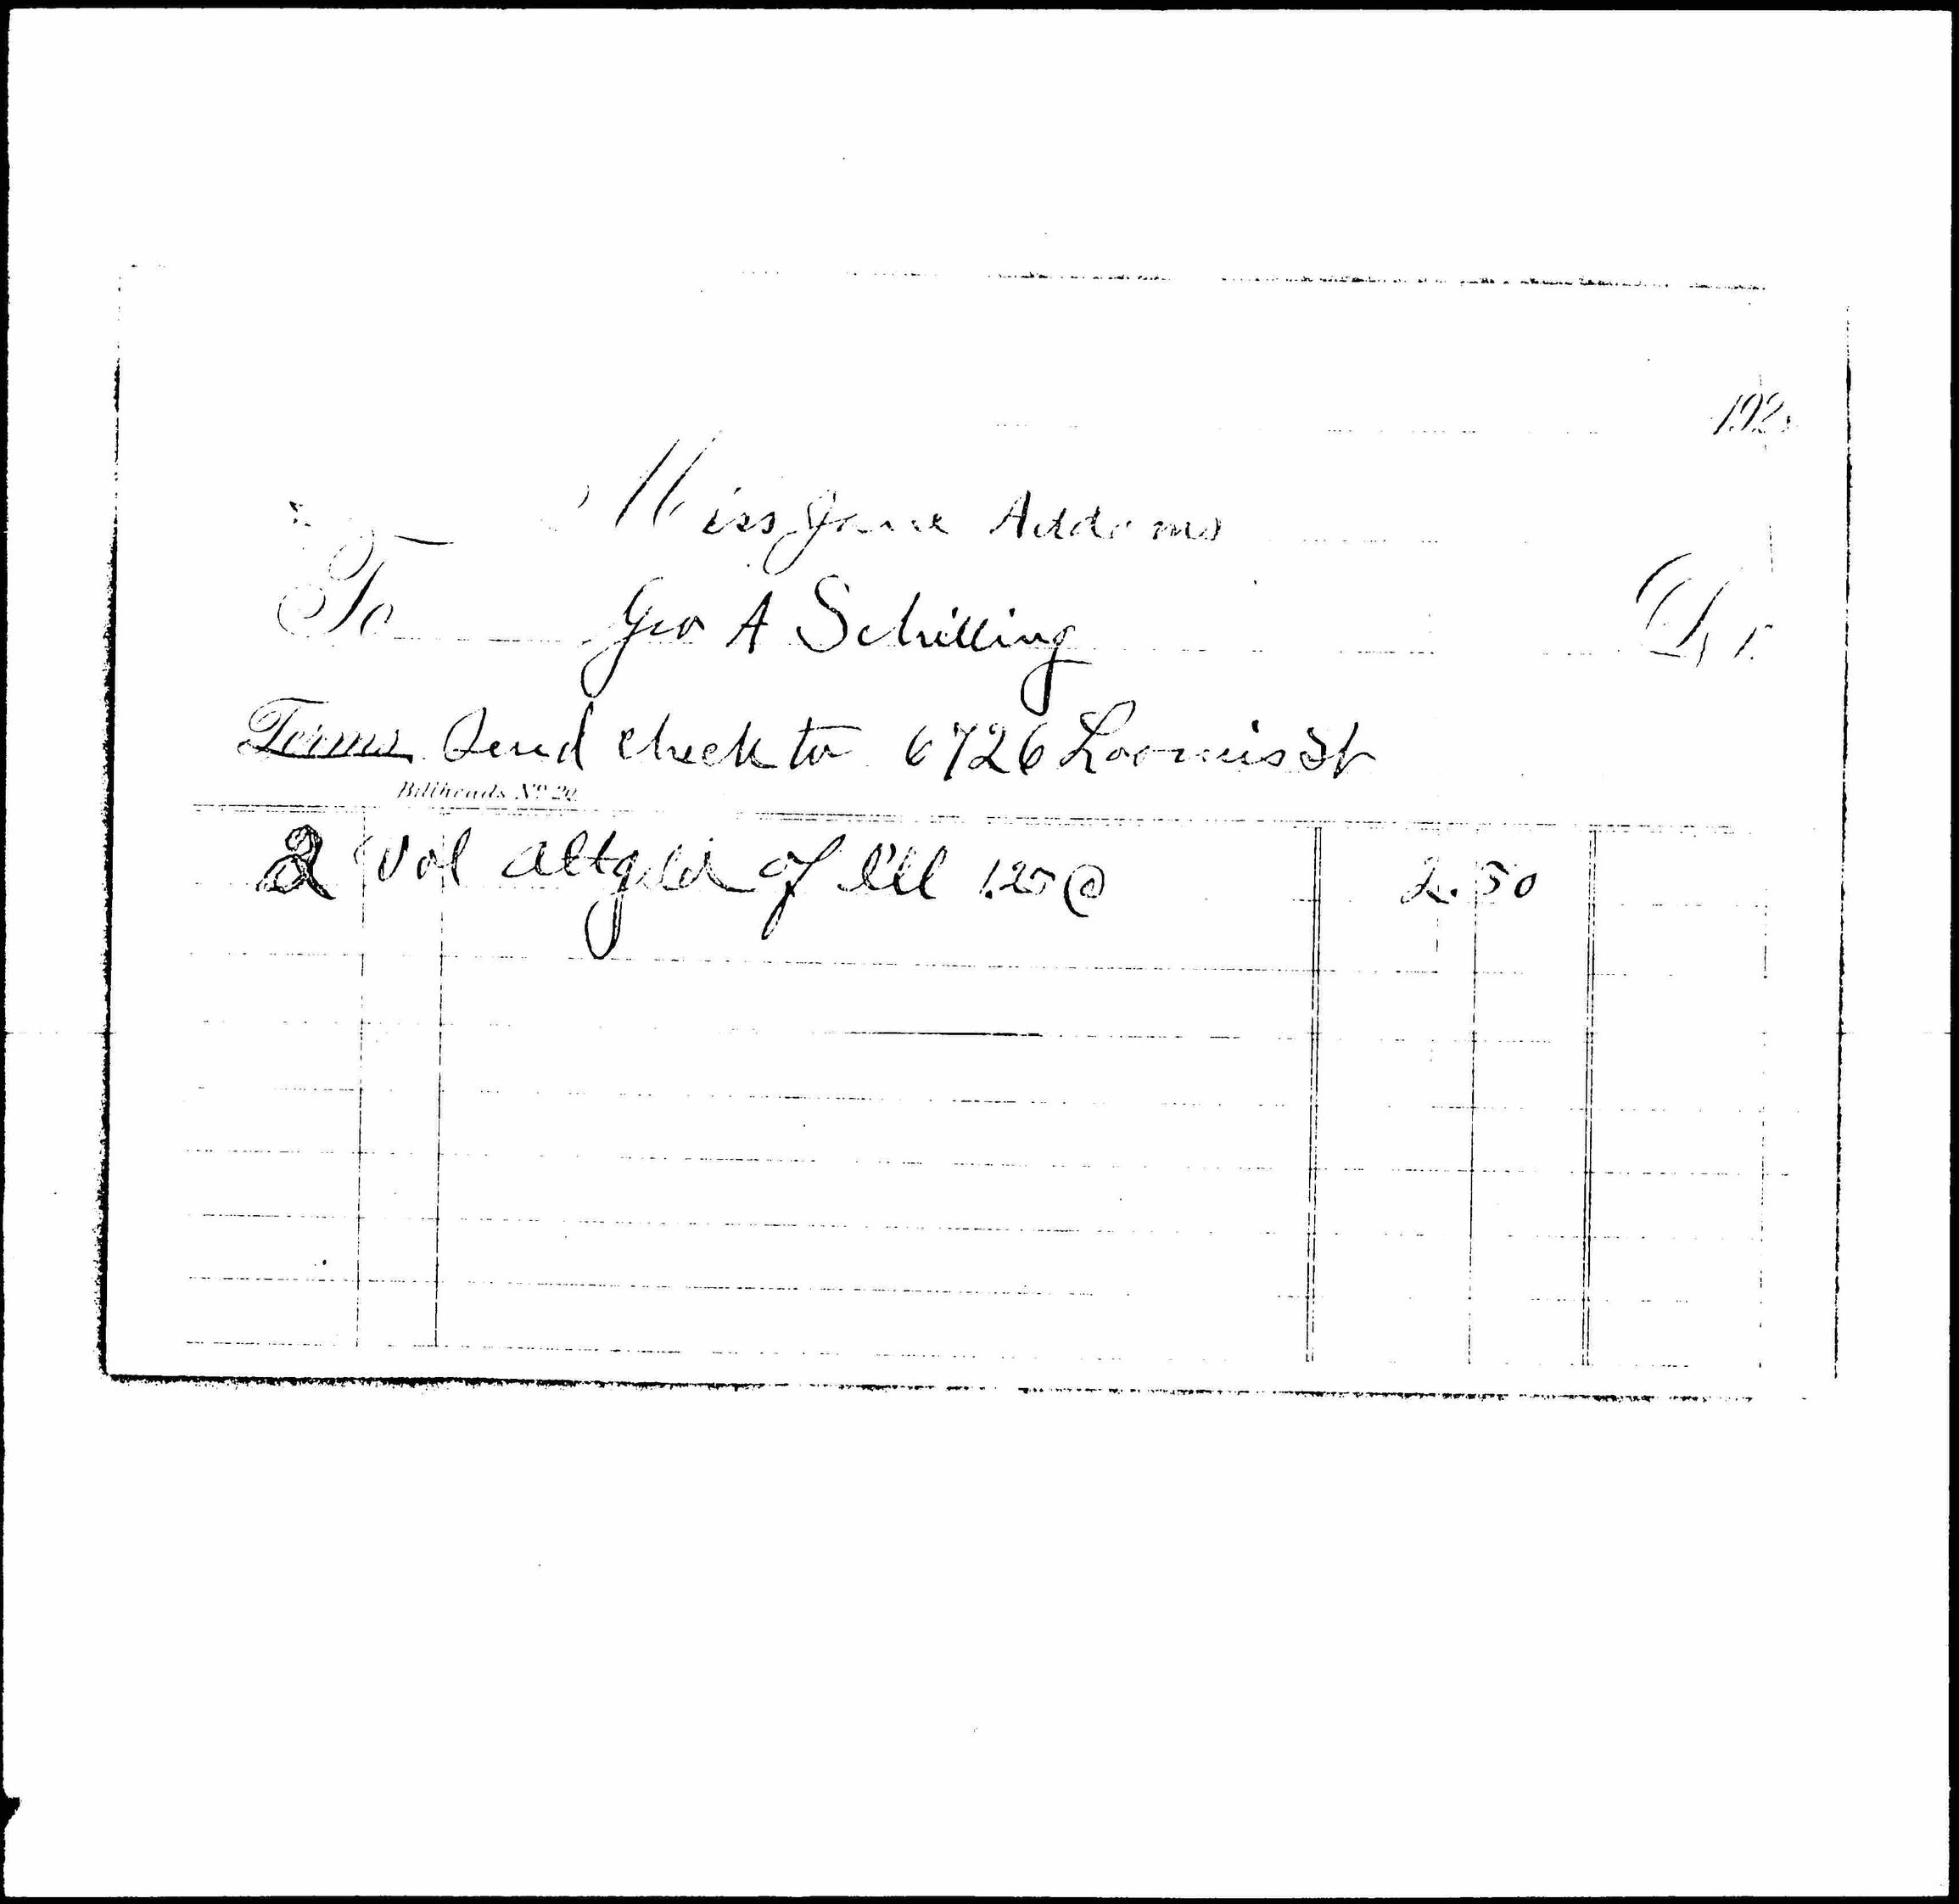 192
Miss Jane Addams
To Geo A Schilling Dr.
Terms Send check to 6726 Loomis St
Billheads No 20
2 Vol Altgeld of Ill 1.25 @ 2.50